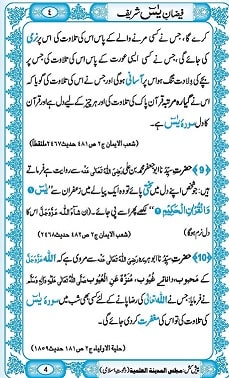 فیضانِ یٰسٓ شریف
٤
کرے گا، جس نے کسی مرنے والے کے پاس اس کی تلاوت کی اس پر نرمی
کی جائے گی، جس نے کسی ایسی عورت کے پاس اس کی تلاوت کی جس پر
بچے کی ولادت تنگ ہو اس پر آسانی ہوگی اور جس نے اس کی تلاوت کی گویا کہ
اس نے گیارہ مرتبہ قرآنِ پاک کی تلاوت کی اور ہر چیز کے لیے دل ہے اور قرآن
کا دل سورۂ یٰسٓ ہے۔
(شعب الایمان ج۲ ص ۴۸۱ حدیث ۲۴۶۷ ملتقطاً)
﴿9﴾ حضرتِ سیدنا ابو جعفر محمد بن علی رضی اللہ تعالیٰ عنہ سے روایت ہے فرماتے
ہیں: جو شخص اپنے دل میں سختی پائے تو وہ ایک پیالے میں زعفران سے ”یٰسٓ
وَالْقُرْاٰنِ الْحَكِیْمِ“ لکھے پھر اسے پی جائے۔ (ان شاء اللہ عزوجل اس کا
دل نرم ہوگا)
(شعب الایمان ج۲ ص ۴۸۲ حدیث ۲۴۶۸)
﴿10﴾ حضرتِ سیدنا ابو ہریرہ رضی اللہ تعالیٰ عنہ سے مروی ہے کہ اللہ عزوجل
کے محبوب، دانائے غیوب، منزہ عن العیوب صلی اللہ تعالیٰ علیہ واٰلہ وسلم
نے فرمایا: جس نے اللہ تعالیٰ کی رضا پانے کے لیے کسی بھی شب میں سورۂ یٰسٓ
کی تلاوت کی تو اس کی مغفرت کر دی جائے گی۔
(حلیۃ الاولیاء ج۲ ص ۱۸۱ حدیث ۱۸۵۹)
پیش کش: مجلس المدینۃ العلمیۃ (دعوتِ اسلامی)
4